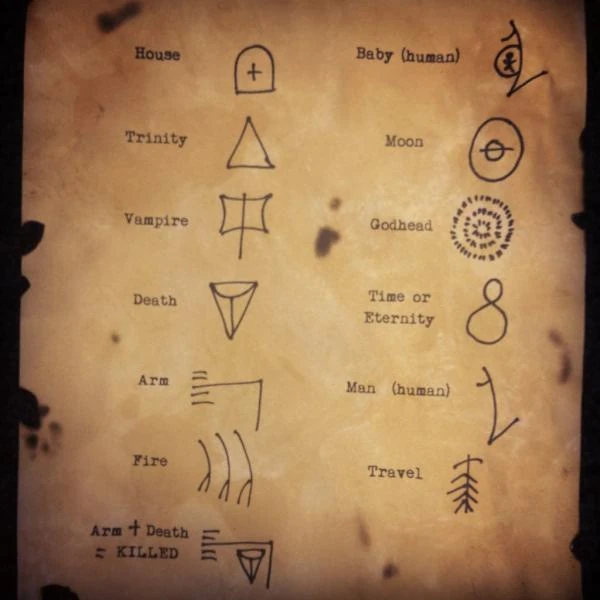 House
Trinity
Vampire
Death
Arm
Fire
Arm + Death
= KILLED
Baby (human)
Moon
Godhead
Time or
Eternity
Man (human)
Travel